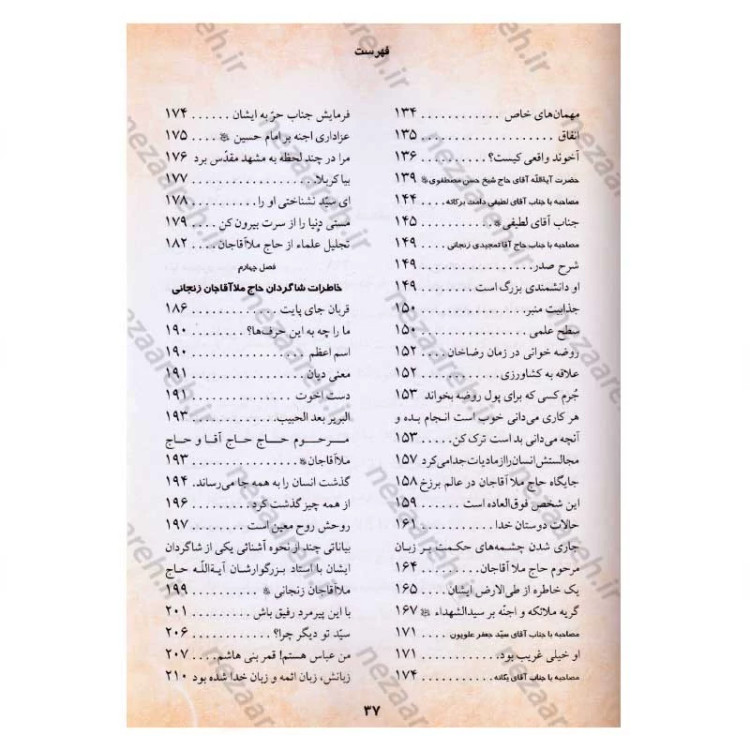 فهرست
مهمان‌های خاص ............ ۱۳۴
انفاق .................... ۱۳۵
آخوند واقعی کیست؟ ........ ۱۳۶
حضرت آیةاللّه آقای حاج شیخ حسن مصطفوی ۱۳۹
مصاحبه با جناب آقای لطیفی دامت برکاته ... ۱۴۴
جناب آقای لطیفی ............ ۱۴۵
مصاحبه با جناب حاج آقا تمجیدی زنجانی .. ۱۴۹
شرح صدر .................. ۱۴۹
او دانشمندی بزرگ است ...... ۱۴۹
جذابیت منبر ................ ۱۵۰
سطح علمی ................ ۱۵۰
روضه خوانی در زمان رضاخان .... ۱۵۲
علاقه به کشاورزی ............ ۱۵۲
جُرم کسی که برای پول روضه بخواند ۱۵۳
هر کاری می‌دانی خوب است انجام بده و
آنچه می‌دانی بد است ترک کن ..... ۱۵۳
مجالستش انسان را از مادیات جدا می‌کرد ۱۵۷
جایگاه حاج ملا آقاجان در عالم برزخ ۱۵۸
این شخص فوق‌العاده است ...... ۱۵۹
حالات دوستان خدا ............ ۱۶۱
جاری شدن چشمه‌های حکمت بر زبان
مرحوم حاج ملا آقاجان ........ ۱۶۴
یک خاطره از طی‌الارض ایشان .... ۱۶۵
گریه ملائکه و اجنّه بر سیدالشهداء ۱۶۷
مصاحبه با جناب آقای سیّد جعفر علویون .... ۱۷۱
او خیلی غریب بود ............ ۱۷۱
مصاحبه با جناب آقای یگانه ............ ۱۷۴
فرمایش جناب حرّ به ایشان ...... ۱۷۴
عزاداری اجنه بر امام حسین .... ۱۷۵
مرا در چند لحظه به مشهد مقدّس برد ۱۷۶
بیا کربلا .................. ۱۷۷
ای سیّد نشناختی او را ........ ۱۷۸
مستی دنیا را از سرت بیرون کن .... ۱۷۹
تجلیل علماء از حاج ملاآقاجان .... ۱۸۲
فصل چهارم
خاطرات شاگردان حاج ملاآقاجان زنجانی
قربان جای پایت .............. ۱۸۶
ما را چه به این حرف‌ها؟ ........ ۱۹۰
اسم اعظم .................. ۱۹۰
معنی دیان .................. ۱۹۱
دست اخوت .................. ۱۹۱
البریر بعد الحبیب ............ ۱۹۳
مرحوم حاج حاج آقا و حاج
ملاآقاجان .................. ۱۹۳
گذشت انسان را به همه جا می‌رساند. ۱۹۴
از همه چیز گذشت کرد .......... ۱۹۶
روحش روح معین است .......... ۱۹۷
بیاناتی چند از نحوه آشنائی یکی از شاگردان
ایشان با استاد بزرگوارشان آیةاللّه حاج
ملاآقاجان زنجانی ............ ۱۹۹
با این پیرمرد رفیق باش ........ ۲۰۱
سیّد تو دیگر چرا؟ ............ ۲۰۶
من عباس هستم! قمر بنی هاشم .... ۲۰۷
زبانش، زبان ائمه و زبان خدا شده بود ۲۱۰
۳۷
nezaareh.ir